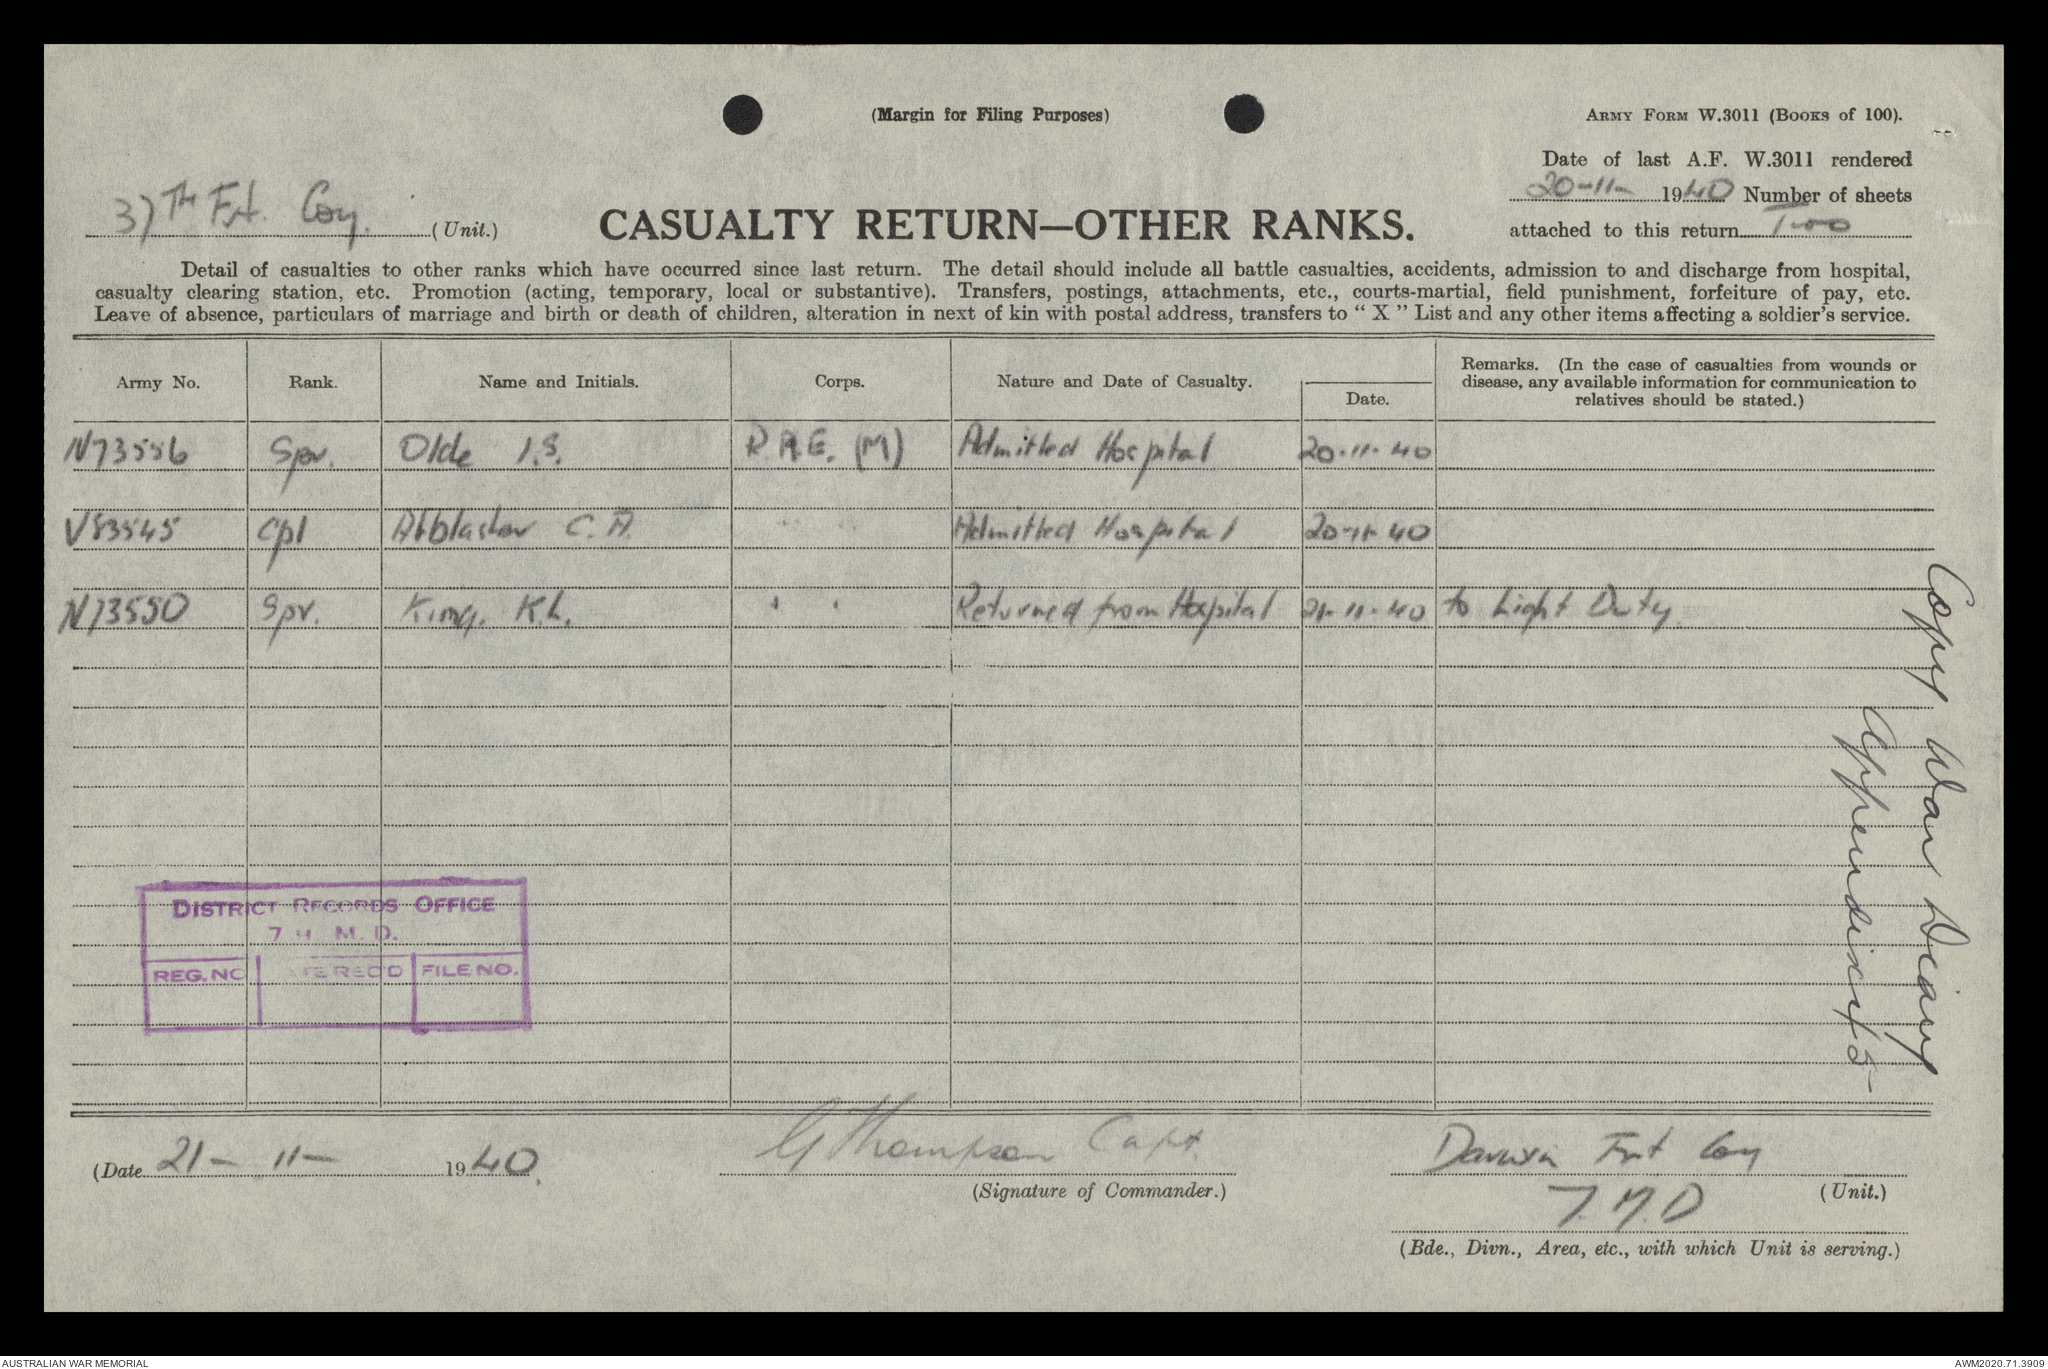 (Margin for Filing Purposes)
ARMY FORM W.3011 (BOOKS of 100).
Date of last A.F. W.3011 rendered
20-11- 1940 Number of sheets
attached to this return Two
37TH Frt. Coy. (Unit.)
CASUALTY RETURN—OTHER RANKS.
Detail of casualties to other ranks which have occurred since last return. The detail should include all battle casualties, accidents, admission to and discharge from hospital,
casualty clearing station, etc. Promotion (acting, temporary, local or substantive). Transfers, postings, attachments, etc., courts-martial, field punishment, forfeiture of pay, etc.
Leave of absence, particulars of marriage and birth or death of children, alteration in next of kin with postal address, transfers to "X" List and any other items affecting a soldier's service.
Army No. Rank. Name and Initials. Corps. Nature and Date of Casualty. Date. Remarks. (In the case of casualties from wounds or
disease, any available information for communication to
relatives should be stated.)
N73556 Spr. Olde I.S. R.A.E. (M) Admitted Hospital 20-11-40
V83545 Cpl C.A. Admitted Hospital 20-11-40
N73550 Spr. King. K.L. " " Returned from Hospital 21-11-40 to Light Duty
Copy War Diary
Appendix 5
DISTRICT RECORDS OFFICE
7 M.D.
REG. NO REC'D FILE NO.
(Date 21- 11- 1940.
G Thompson Capt.
(Signature of Commander.)
Darwin Frt Coy
(Unit.)
7.M.D
(Bde., Divn., Area, etc., with which Unit is serving.)
AUSTRALIAN WAR MEMORIAL
AWM2020.71.3909